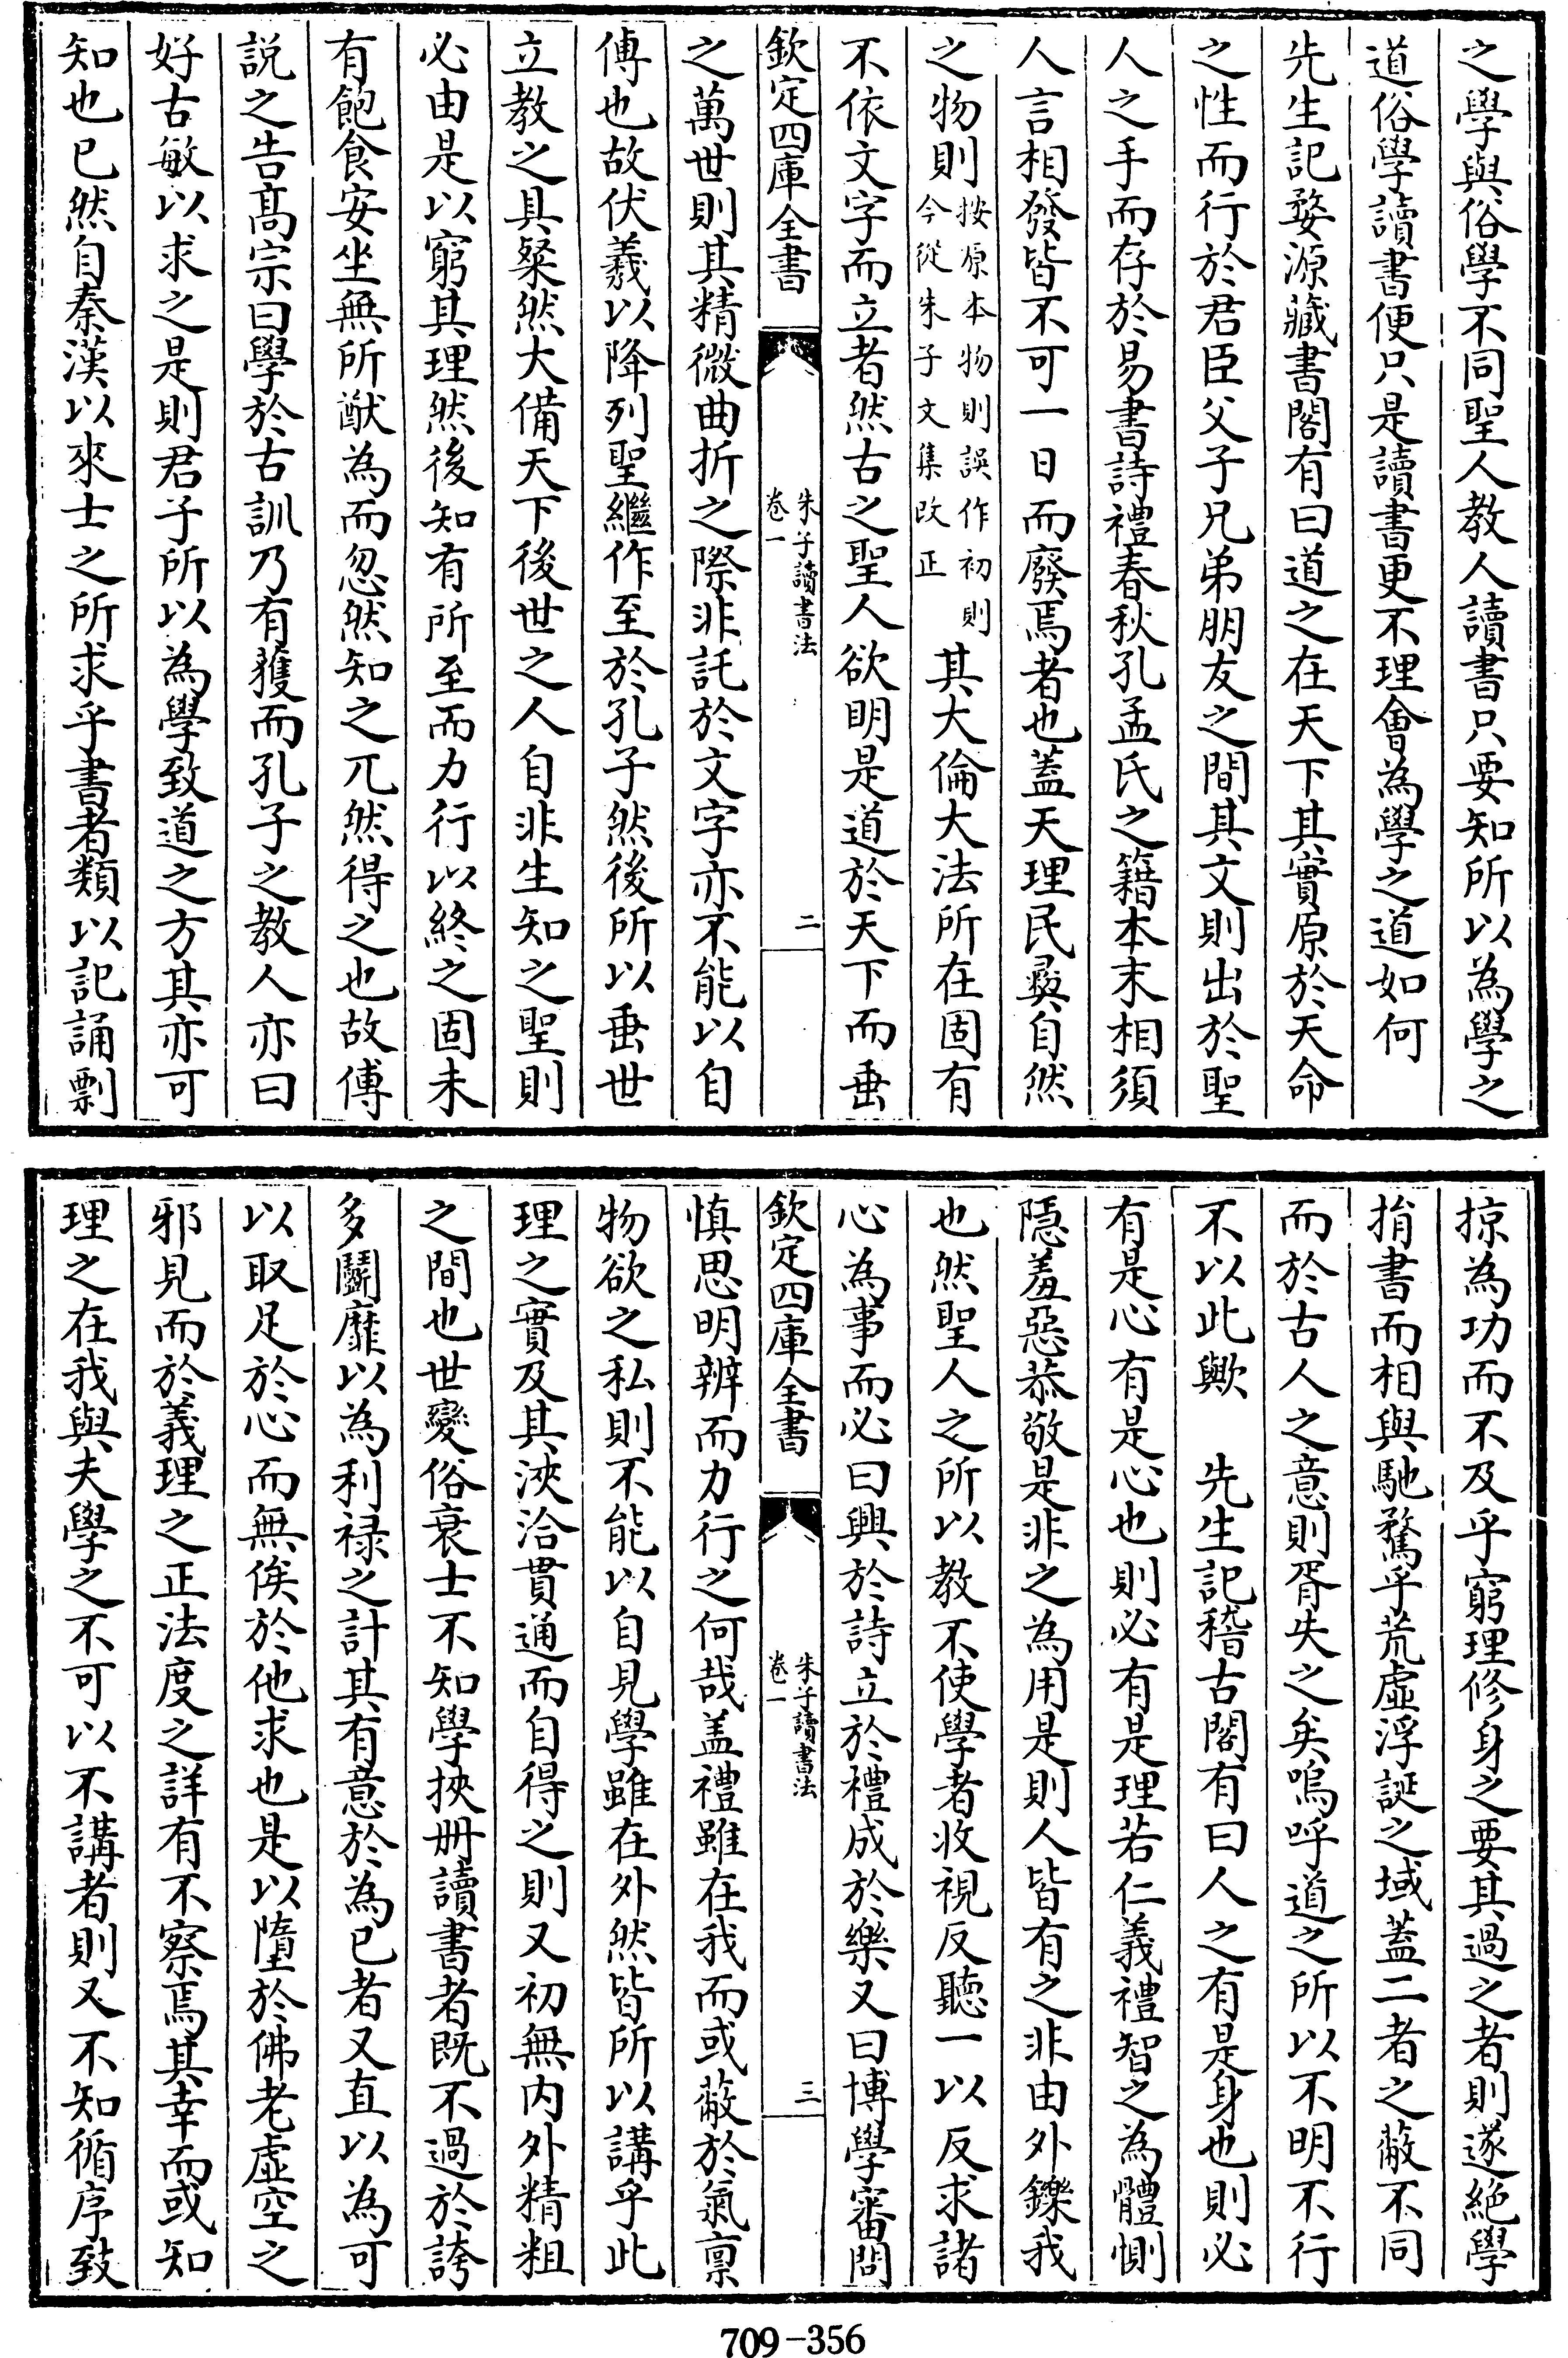 之學與俗學不同聖人教人讀書只要知所以為學之
道俗學讀書便只是讀書更不理會為學之道如何
先生記婺源藏書閣有曰道之在天下其實原於天命
之性而行於君臣父子兄弟朋友之間其文則出於聖
人之手而存於易書詩禮春秋孔孟氏之籍本末相須
人言相發皆不可一日而廢焉者也蓋天理民彝自然
之物則按原本物則誤作初則今從朱子文集改正其大倫大法所在固有
不依文字而立者然古之聖人欲明是道於天下而垂
欽定四庫全書
朱子讀書法
卷一
二
之萬世則其精微曲折之際非託於文字亦不能以自
傳也故伏羲以降列聖繼作至於孔子然後所以垂世
立教之具粲然大備天下後世之人自非生知之聖則
必由是以窮其理然後知有所至而力行以終之固未
有飽食安坐無所猷為而忽然知之兀然得之也故傅
説之告髙宗曰學於古訓乃有獲而孔子之教人亦曰
好古敏以求之是則君子所以為學致道之方其亦可
知也已然自秦漢以來士之所求乎書者類以記誦剽
掠為功而不及乎窮理修身之要其過之者則遂絶學
捐書而相與馳騖乎荒虛浮誕之域蓋二者之蔽不同
而於古人之意則胥失之矣嗚呼道之所以不明不行
不以此歟 先生記稽古閣有曰人之有是身也則必
有是心有是心也則必有是理若仁義禮智之為體惻
隱羞惡恭敬是非之為用是則人皆有之非由外鑠我
也然聖人之所以教不使學者收視反聽一以反求諸
心為事而必曰興於詩立於禮成於樂又曰博學審問
欽定四庫全書
朱子讀書法
卷一
三
慎思明辨而力行之何哉盖禮雖在我而或蔽於氣禀
物欲之私則不能以自見學雖在外然皆所以講乎此
理之實及其浹洽貫通而自得之則又初無内外精粗
之間也世變俗衰士不知學挾册讀書者既不過於誇
多鬭靡以為利禄之計其有意於為已者又直以為可
以取足於心而無俟於他求也是以墮於佛老虛空之
邪見而於義理之正法度之詳有不察焉其幸而或知
理之在我與夫學之不可以不講者則又不知循序致
709-356